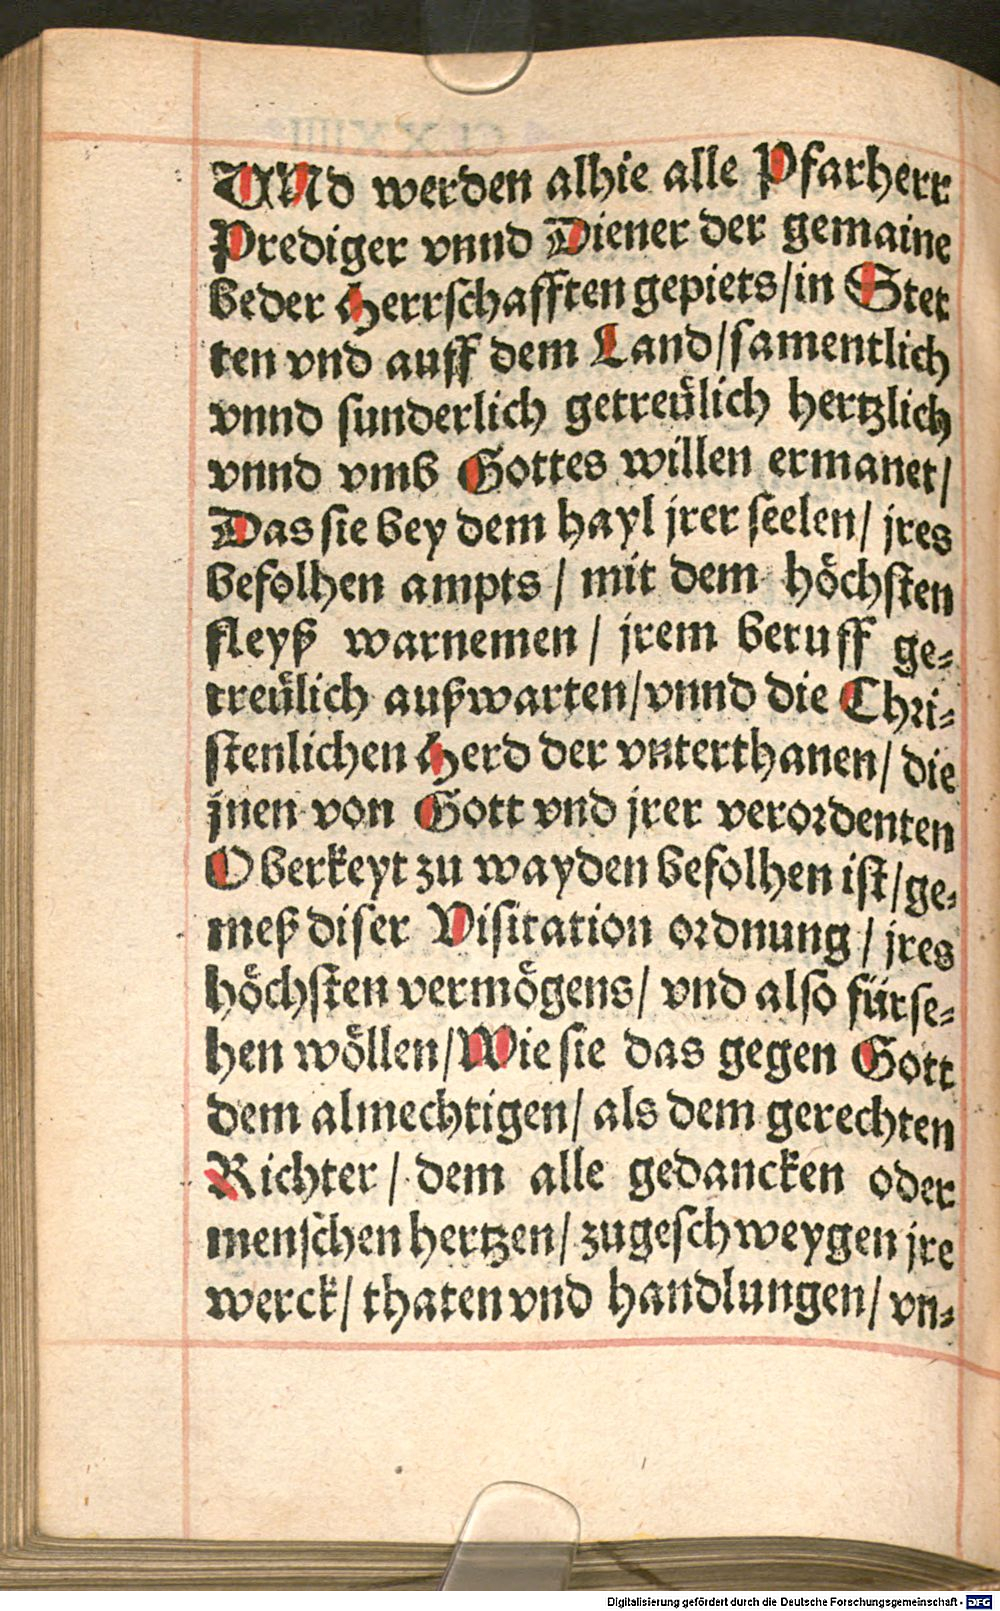 UNd werden alhie alle Pfarherr
Prediger vnnd Diener der gemaine
beder Herrschafften gepiets/in Stet
ten vnd auff dem Land/samentlich
vnnd sunderlich getreülich hertzlich
vnnd vmb Gottes willen ermanet/
Das sie bey dem hayl jrer seelen/ jres
befolhen ampts / mit dem höchsten
fleyß warnemen / jrem beruff ge-
treülich außwarten/vnnd die Chri-
stenlichen Herd der vnterthanen/ die
jnen von Gott vnd jrer verordenten
Oberkeyt zu wayden befolhen ist/ge-
meß diser Visitation ordnung / jres
höchsten vermögens/ vnd also fürse-
hen wöllen/Wie sie das gegen Gott
dem almechtigen/ als dem gerechten
Richter / dem alle gedancken oder
menschen hertzen/ zugeschweygen jre
werck/ thaten vnd handlungen/ vn-
Digitalisierung gefördert durch die Deutsche Forschungsgemeinschaft - DFG